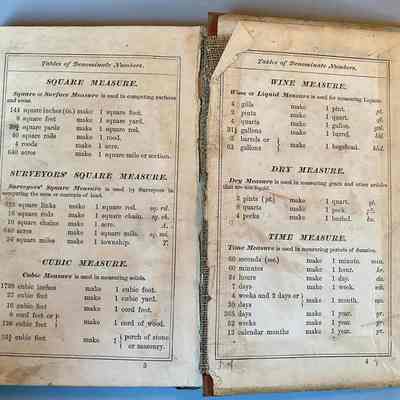 Tables of Denominate Numbers.
SQUARE MEASURE.
Square or Surface Measure is used in computing surfaces
and areas.
144 square inches (in.) make 1 square foot.
9 square feet make 1 square yard.
30¼ square yards make 1 square rod.
40 square rods make 1 rood.
4 roods make 1 acre.
640 acres make 1 square mile or section.
SURVEYORS' SQUARE MEASURE.
Surveyors' Square Measure is used by Surveyors in
computing the area or contents of land.
625 square links make 1 square rod. sq. rd.
16 square rods make 1 square chain. sq. ch.
10 square chains make 1 acre. A.
640 acres make 1 square mile. sq. mi.
36 square miles make 1 township. T.
CUBIC MEASURE.
Cubic Measure is used in measuring solids.
1728 cubic inches make 1 cubic foot.
27 cubic feet make 1 cubic yard.
16 cubic feet make 1 cord foot.
8 cord feet or
128 cubic feet } make 1 cord of wood.
cubic feet make 1 { perch of stone
or masonry.
3
Tables of Denominate Numbers.
WINE MEASURE.
Wine or Liquid Measure is used for measuring Liquids.
4 gills make 1 pint. pt.
2 pints make 1 quart. qt.
4 quarts make 1 gallon. gal.
31½ gallons make 1 barrel. bbl.
2 barrels or
63 gallons } make 1 hogshead. hhd.
DRY MEASURE.
Dry Measure is used in measuring grain and other articles
that are not liquid.
2 pints (pt.) make 1 quart. qt.
8 quarts make 1 peck. pk.
4 pecks make 1 bushel. bu.
TIME MEASURE.
Time Measure is used in measuring periods of duration.
60 seconds (sec.) make 1 minute. min.
60 minutes make 1 hour. hr.
24 hours make 1 day. da.
7 days make 1 week. wk.
4 weeks and 2 days or
30 days } make 1 month. mo.
365 days make 1 year. yr.
52 weeks make 1 year. yr.
12 calendar months make 1 year. yr.
4